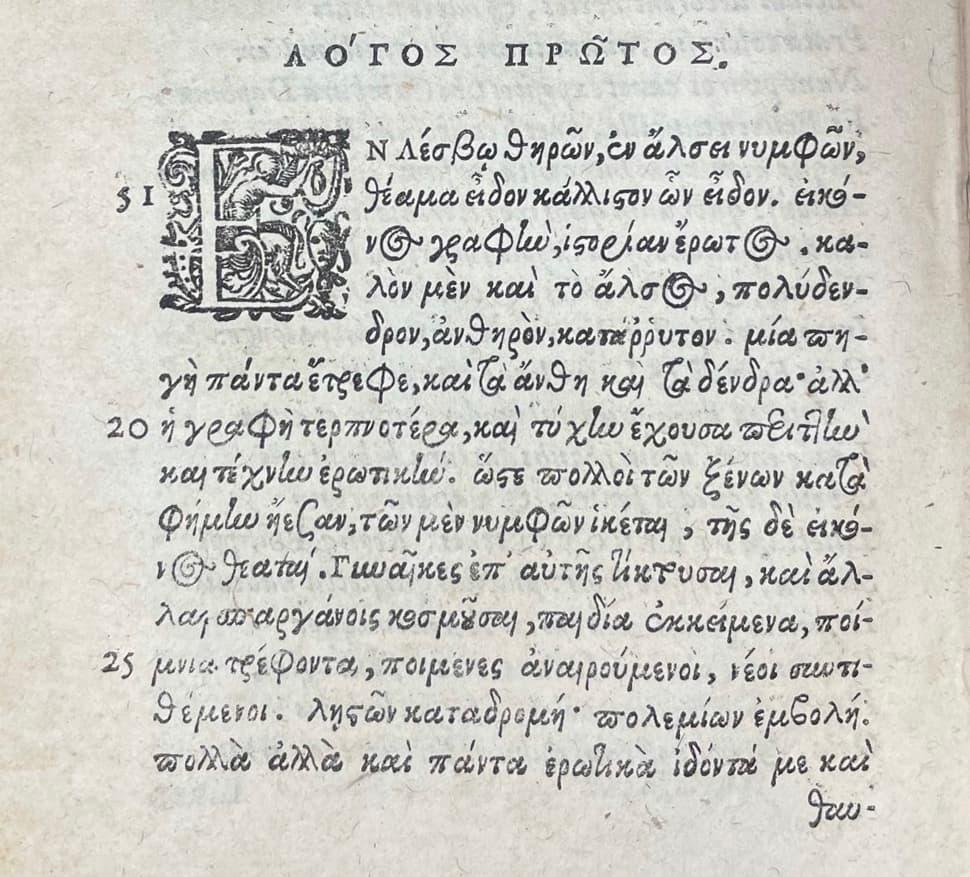 ΛΟΓΟΣ ΠΡΩ͂ΤΟΣ.
ΕΝ Λέσβῳ θηρῶν, ἐν ἄλσει νυμφῶν,
51 θέαμα εἶδον κάλλιστον ὧν εἶδον. εἰκό-
νος γραφὴν, ἱστορίαν ἔρωτος. κα-
λὸν μὲν καὶ τὸ ἄλσος, πολύδεν-
δρον, ἀνθηρὸν, κατάῤῥυτον. μία πη-
γὴ πάντα ἔτρεφε, καὶ τὰ ἄνθη καὶ τὰ δένδρα· ἀλλ'
20 ἡ γραφὴ τερπνοτέρα, καὶ τύχην ἔχουσα περιττὴν
καὶ τέχνην ἐρωτικήν. ὥστε πολλοὶ τῶν ξένων κατὰ
φήμην ᾔεσαν, τῶν μὲν νυμφῶν ἱκέται, τῆς δὲ εἰκό-
νος θεαταί. Γυναῖκες ἐπ' αὐτῆς τίκτουσαι, καὶ ἄλ-
λαι σπαργάνοις κοσμοῦσαι, παιδία ἐκκείμενα, ποί-
25 μνια τρέφοντα, ποιμένες ἀναιρούμενοι, νέοι συντι-
θέμενοι. λῃστῶν καταδρομή· πολεμίων ἐμβολή.
πολλὰ ἀλλὰ καὶ πάντα ἐρωτικὰ ἰδόντά με καὶ
θαυ-